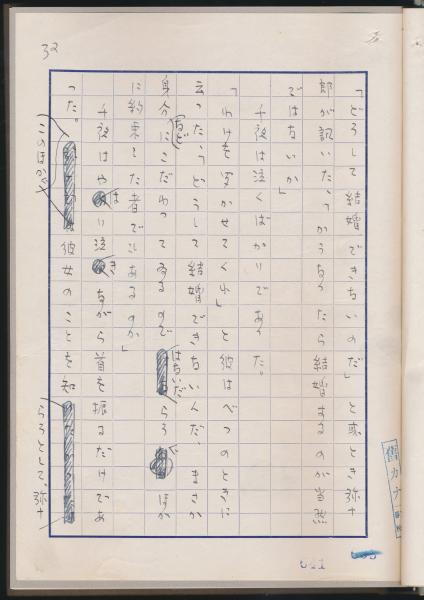 32
「どうして結婚できないのだ」と或とき弥十
郎が訊いた、「かうなったら結婚するのが当然
ではないか」
千夜は泣くばかりであった。
「わけを聞かせてくれ」と彼はべつのときに
云った、「どうして結婚できないんだ、まさか
身分などにこだわってゐるのではないだらうな、ほか
に約束した者でもあるのか」
千夜はやはり泣きながら首を振るだけであ
った。このほかに彼女のことを知
らうとして、弥十
舊カナ